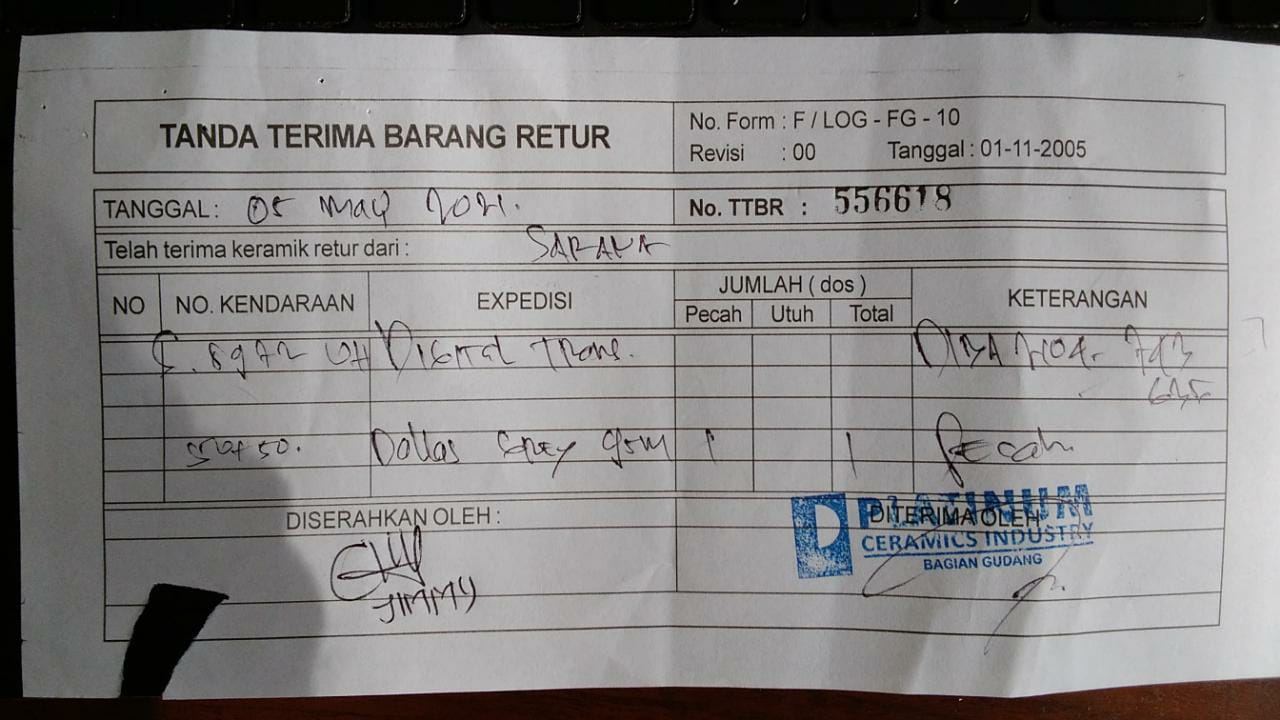 TANDA TERIMA BARANG RETUR
No. Form : F / LOG - FG - 10
Revisi : 00 Tanggal : 01-11-2005
TANGGAL : 05 May 2021.
No. TTBR : 556618
Telah terima keramik retur dari : SARANA
NO NO. KENDARAAN EXPEDISI JUMLAH ( dos ) KETERANGAN
Pecah Utuh Total
8972 UH Digital Trans.
Dallas Grey 1 1 Pecah.
DISERAHKAN OLEH :
DITERIMA OLEH
PLATINUM
CERAMICS INDUSTRY
BAGIAN GUDANG
JIMMY